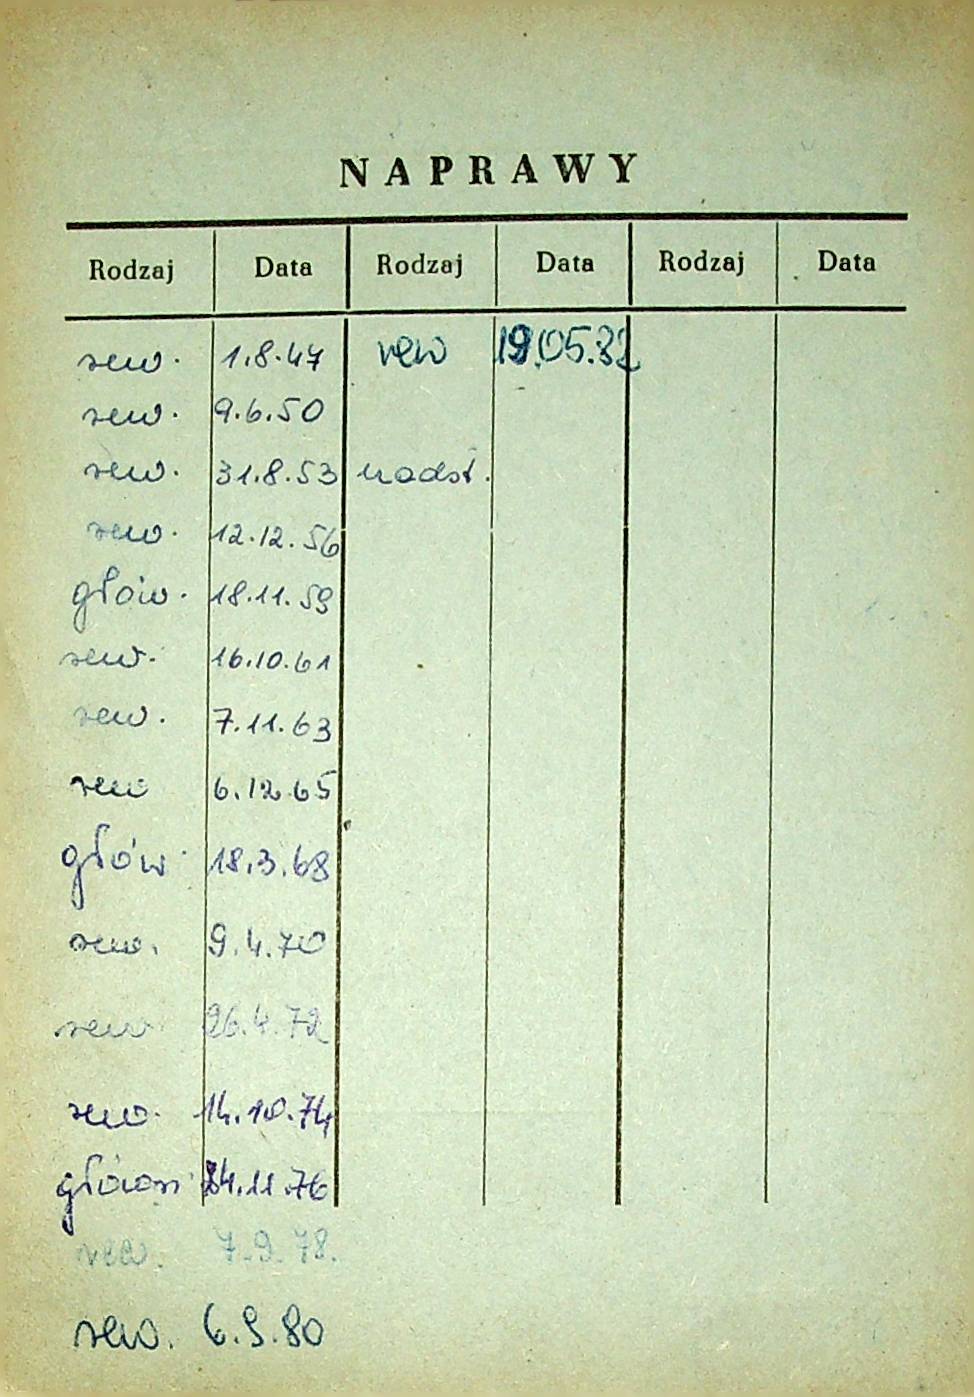 NAPRAWY
Rodzaj Data Rodzaj Data Rodzaj Data
rew. 1.8.47 rew 19.05.82
rew. 9.6.50
rew. 31.8.53 nadst.
rew. 12.12.56
głów. 18.11.59
rew. 16.10.61
rew. 7.11.63
rew 6.12.65
głów. 18.3.68
rew. 9.4.70
rew 26.4.72
rew. 14.10.74
24.11.76
rew. 7.9.78.
rew. 6.9.80